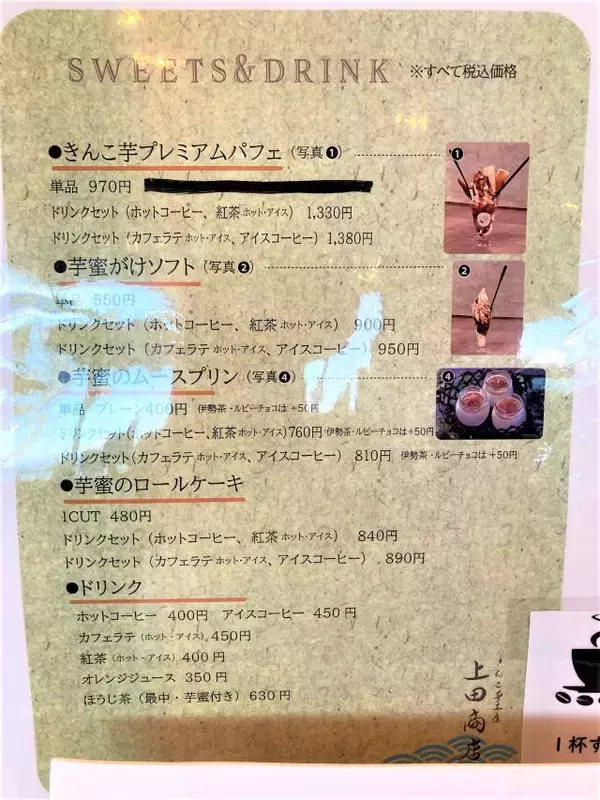 SWEETS&DRINK ※すべて税込価格
●きんこ芋プレミアムパフェ(写真❶)
❶
単品 970円
ドリンクセット(ホットコーヒー、紅茶ホット・アイス) 1,330円
ドリンクセット(カフェラテホット・アイス、アイスコーヒー) 1,380円
●芋蜜がけソフト(写真❷)
❷
単品 550円
ドリンクセット(ホットコーヒー、紅茶ホット・アイス) 900円
ドリンクセット(カフェラテホット・アイス、アイスコーヒー) 950円
●芋蜜のムースプリン(写真❹)
❹
単品 プレーン400円 伊勢茶・ルビーチョコは+50円
ドリンクセット(ホットコーヒー、紅茶ホット・アイス)760円 伊勢茶・ルビーチョコは+50円
ドリンクセット(カフェラテホット・アイス、アイスコーヒー) 810円 伊勢茶・ルビーチョコは+50円
●芋蜜のロールケーキ
1CUT 480円
ドリンクセット(ホットコーヒー、紅茶ホット・アイス) 840円
ドリンクセット(カフェラテホット・アイス、アイスコーヒー) 890円
●ドリンク
ホットコーヒー 400円 アイスコーヒー 450円
カフェラテ(ホット・アイス) 450円
紅茶(ホット・アイス) 400円
オレンジジュース 350円
ほうじ茶(最中・芋蜜付き) 630円
きんこ芋工房
上田商店
1杯す